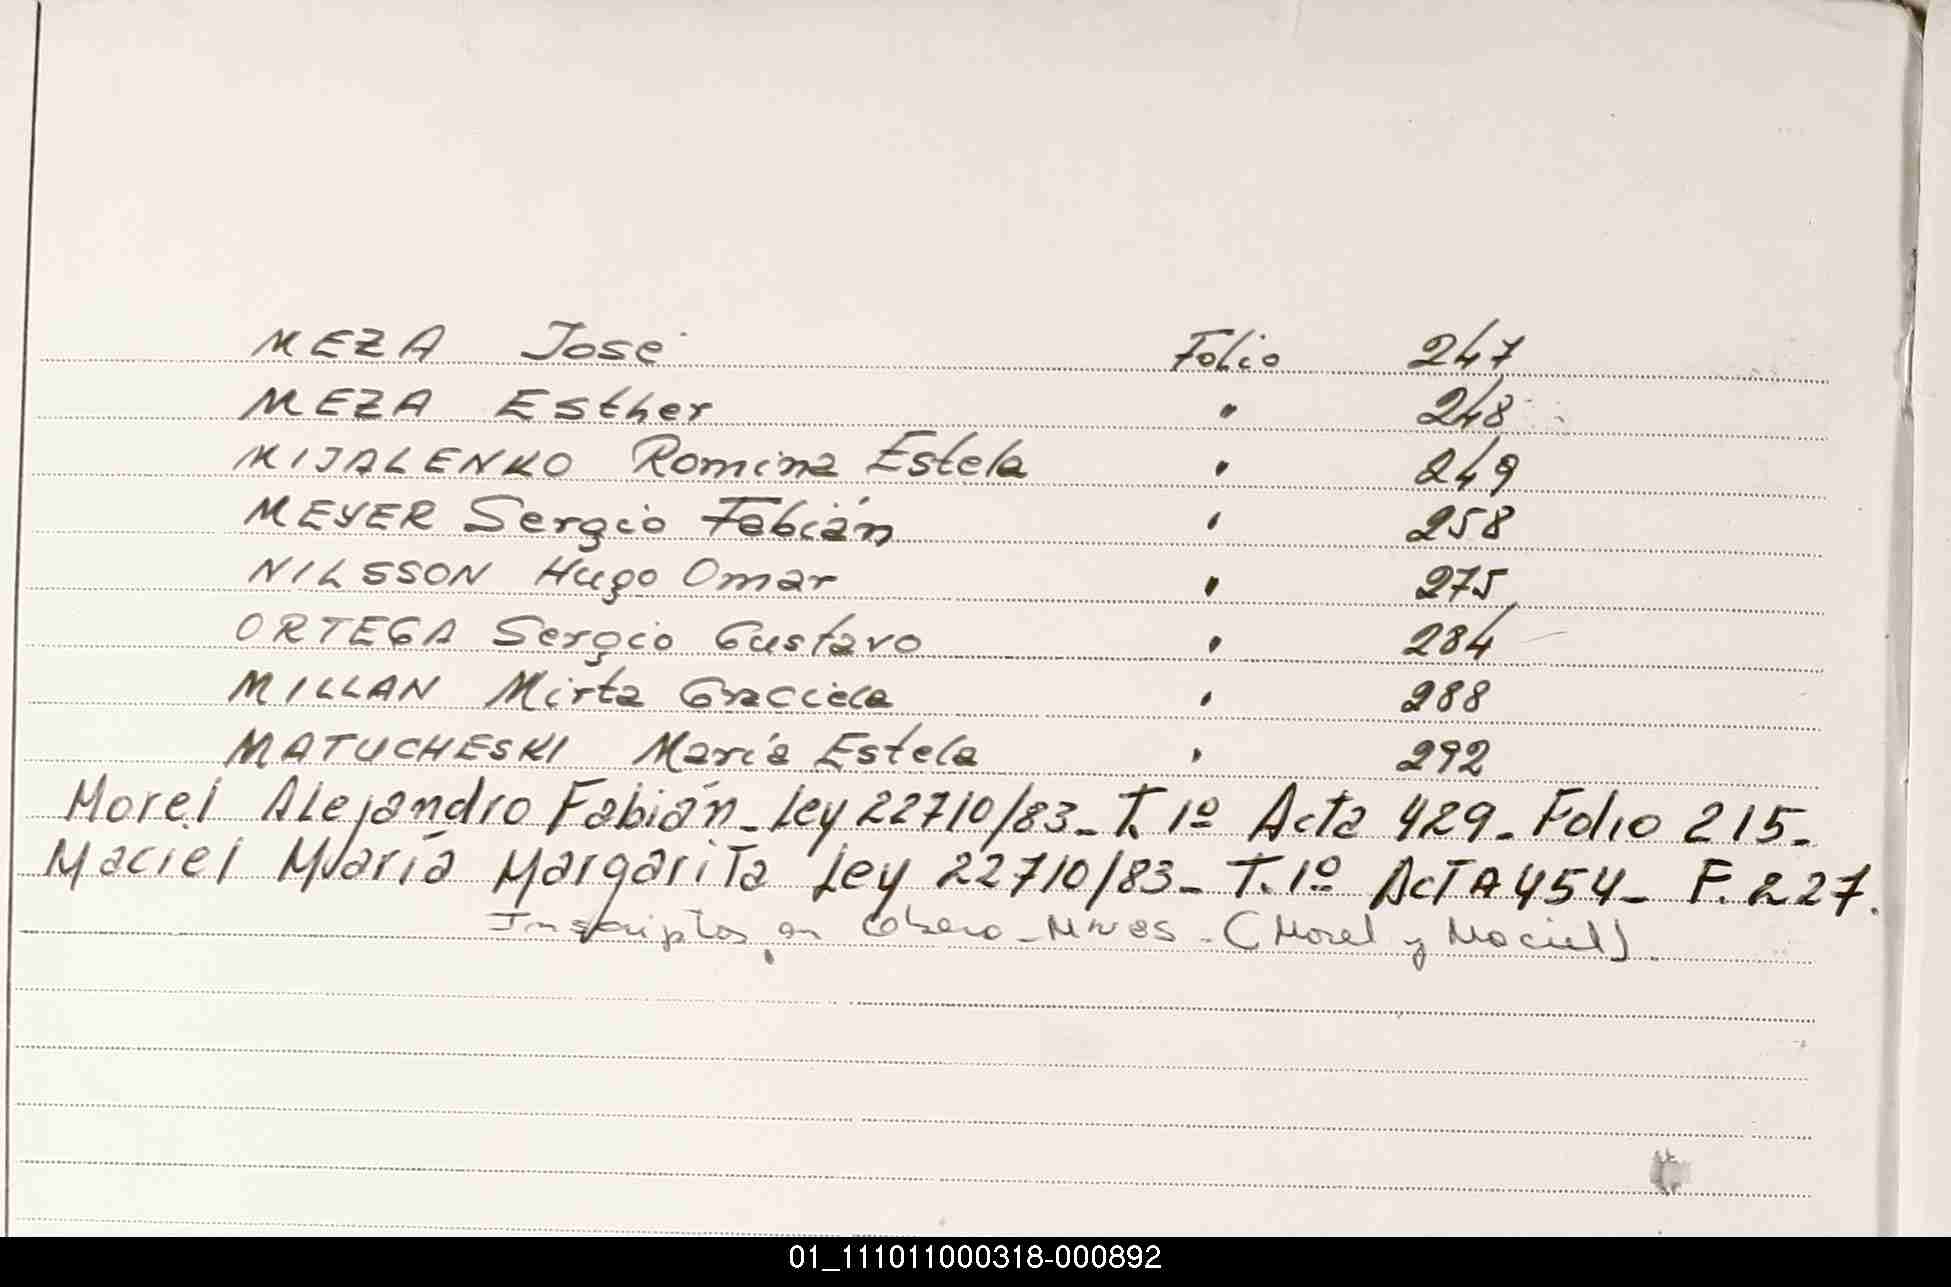 MEZA José Folio 247
MEZA Esther " 248
MIJALENKO Romina Estela " 249
MEYER Sergio Fabián " 258
NILSSON Hugo Omar " 275
ORTEGA Sergio Gustavo " 284
MILLAN Mirta Graciela " 288
MATUCHESKI María Estela " 292
Morel Alejandro Fabián - Ley 22710/83 - T. 1º Acta 429 - Folio 215 -
Maciel María Margarita Ley 22710/83 - T. 1º ACTA 454 - F. 227.
Inscriptos en - (Morel y Maciel).
01_111011000318-000892